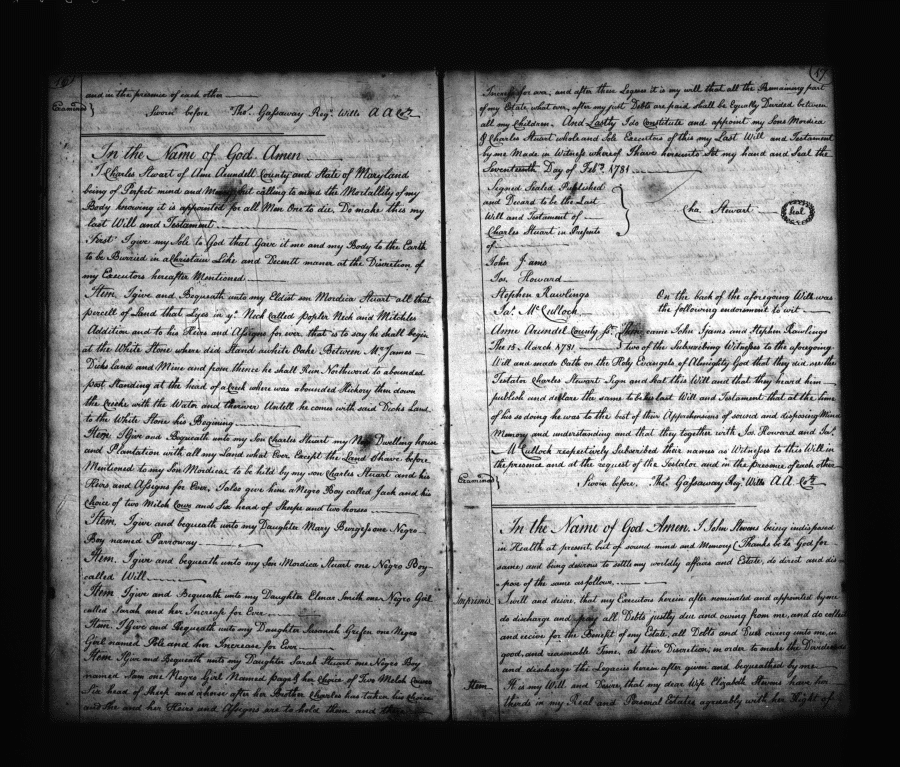 and in the presence of each other
Examined } Sworn before Thos. Gassaway Regr. Wills A A Coty
In the Name of God Amen
I Charles Stewart of Anne Arundell County and State of Maryland
being of Perfect mind and Memory but calling to mind the Mortallity of my
Body knowing it is appointed for all Men One to die, Do make this my
last Will and Testament
First I give my Sole to God that Gave it me and my Body to the Earth
to be Burried in a Christain Like and Decentt maner at the Discretion of
my Executors hereafter Mentioned
Item. I give and Bequeath unto my Eldist son Mordica Stuart all that
percell of Land that Lyes in ye Neck called Popler Neck and Mitchles
Addition and to his Heirs and Assigns for ever, that is to say he shall begin
at the White Stone where did Stand a white Oake Between Mr James
Dicks land and Mine and from thence he shall Run Northword to a bounded
post Standing at the head of a Creek where was a bounded Hickory then down
the Creeke with the Water and thariver Untell he comes with said Dicks Land
to the White Stone his Begining
Item. I Give and Bequeath unto my Son Charles Stuart my Dwelling house
and Plantation with all my Land what Ever Except the Land I have before
Mentioned to my Son Mordica to be held by my son Charles Stuart and his
Heirs and Assigns for Ever, I also give him a Negro Boy called Jack and his
Choice of two Milch Cows and Six head of Sheepe and two horses
Item. I give and bequeath unto my Daughter Mary Burgess one Negro
Boy named Parroway
Item. I give and bequeath unto my Son Mordica Stuart one Negro Boy
called Will
Item I give and Bequeath unto my Daughter Elenor Smith one Negro Girl
called Sarah and her Increase for Ever
Item. I Give and Bequeath unto my Daughter Susanah Grifen one Negro
Girl named Pole and her Increase for Ever
Item I give and Bequeath unto my Daughter Sarah Stuart one Negro Boy
named Sam one Negro Girl Named Page & her Choice of Two Melch Cowes
Six head of Sheep and a horse after her Brother Charles has taken his Choice
and She and her Heirs and Assigns are to hold them and
57
Increase for ever, and after these Legices it is my will that all the Remaning part
of my Estate, what ever, after my just Debts are paid shall be Equally Divided between
all my Children. And Lastly I do Constitute and appoint my Sons Mordica
& Charles Stuart whole and Sole Executors of this my Last Will and Testament
by me Made in Witness whereof I have hereunto Set my hand and Seal the
Seventeenth Day of Feby. 1781
Signed Sealed Published
and Decard to be the Last
Will and Testament of
Charles Stuart in Presents
of
Cha. Stewart Seal
John Ijams
Jos. Howard
Stephen Rawlings
Jas. McCulloch
On the back of the aforegoing Will was
the following endorsement to wit
Anne Arundel County Sct. Then came John Ijams and Stephen Rawlings
The 15 March 1781 } two of the Subscribing Witnesses to the aforegoing
Will and made Oath on the Holy Evangels of Almighty God that they did see the
Testator Charles Stewart Sign and Seal this Will and that they heard him
publish and declare the same to be his last Will and Testament that at the time
of his so doing he was to the best of their Apprehensions of sound and disposing Mind
Memory and understanding and that they together with Jos. Howard and Jas.
McCulloch respectively Subscribed their names as Witnesses to this Will in
the presence and at the request of the Testator and in the presence of each other
Examined } Sworn before. Thos. Gassaway Regr. Wills A A Coty
In the Name of God Amen, I John Stevens being indisposed
in Health at present, but of sound mind and Memory (Thanks be to God for
same) and being desirous to settle my worldly affairs and Estate, do direct and dis
pose of the same as follows,
Imprimis I will and desire, that my Executors herein after nominated and appointed by me
do discharge and pay all Debts justly due and owing from me, and do collect
and receive for the Benefit of my Estate, all Debts and Dues owing unto me, in
good, and reasonable Time, at their Discretion, in order to make the Dividends
and discharge the Legacies herein after given and bequeathed by me
Item It is my Will and Desire, that my dear Wife Elizabeth Stevens have her
thirds in my Real and Personal Estates agreeably with her Right of